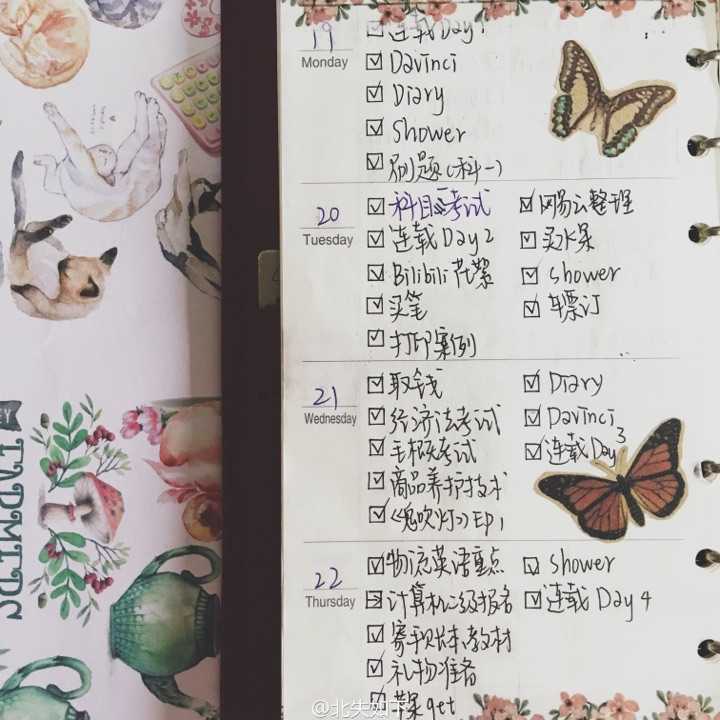 19
Monday
连载Day1
Davinci
Diary
Shower
刷题(科一)
20
Tuesday
科目一考试
连载Day2
Bilibili
买笔
打印案例
网易云整理
买水果
shower
车票订
21
Wednesday
取钱
经济法考试
毛概考试
商品养护技术
《鬼吹灯》EP1
Diary
Davinci
连载Day3
22
Thursday
物流英语重点
计算机二级报名
寄手账本,教材
礼物准备
苹果get
shower
连载Day4
FARMING
@北失如下